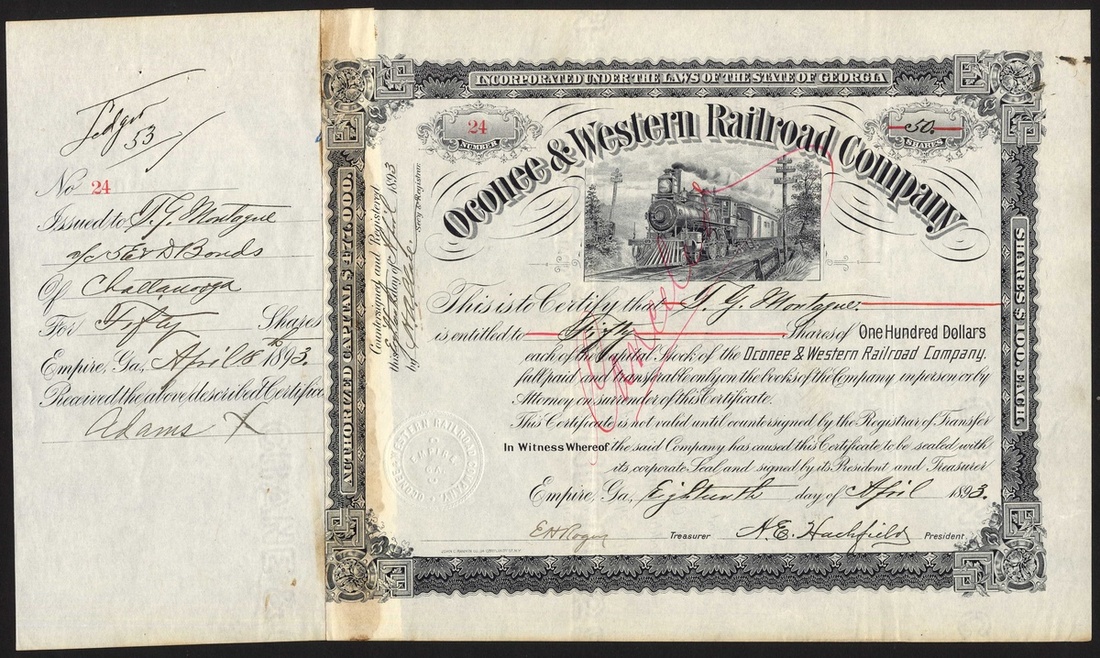 Ledger
53
No 24
Issued to T. G. Montague
a/c S E & D Bonds
Of Chattanooga
For Fifty Shares
Empire, Ga, April 18th 1893.
Received the above described Certificate
Adams X
INCORPORATED UNDER THE LAWS OF THE STATE OF GEORGIA
24
NUMBER
50.
SHARES
Oconee & Western Railroad Company
AUTHORIZED CAPITAL
SHARES $100. EACH.
Countersigned and Registered
this day of April 1893
by Sec'y & Registrar.
Cancelled
This is to Certify that T. G. Montague.
is entitled to Fifty Shares of One Hundred Dollars
each of the Capital Stock of the Oconee & Western Railroad Company.
full paid and transferable only on the books of the Company in person or by
Attorney on surrender of this Certificate.
This Certificate is not valid until countersigned by the Registrar of Transfer
In Witness Whereof the said Company has caused this Certificate to be sealed with
its corporate Seal and signed by its President and Treasurer
Empire, Ga, Eighteenth day of April 1893.
OCONEE & WESTERN RAILROAD COMPANY.
EMPIRE
GA.
E H Rogers Treasurer A. E. Hachfield President